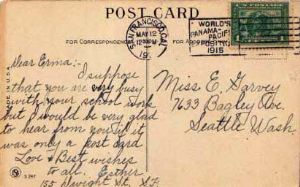 POST CARD
FOR CORRESPONDENCE
SAN FRANCISCO, CAL.
MAY 12
12-30 PM
19
WORLD'S
PANAMA-PACIFIC
EXPOSITION
1915
MADE IN U.S.A.
Dear Erma:- I suppose
that you are very busy
with your school work
but I would be very glad
to hear from you if it
was only a post card
Love & Best wishes
to all. Esther
155 Dwight St. S.F.
Miss E. Garvey
7633 Bagley Ave.
Seattle Wash.